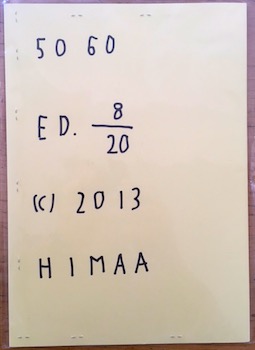 50 60
ED. 8/20
(C) 2013
HIMAA